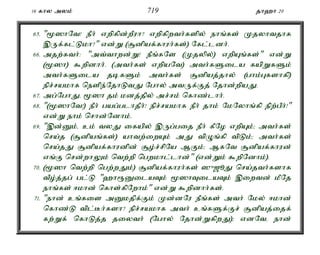 16 கால அலம் 719 தாஹா 20
65. "மூஸாவே! நீர் எறிகின்றீரா? எறிகிறவர்களில் நாங்கள் முதலாவதாக
இருக்கட்டுமா?" என்று (சூனியக்காரர்கள்) கேட்டனர்.
66. அதற்கவர்: "அவ்வாறன்று! நீங்களே (முதலில்) எறியுங்கள்" என்று
(மூஸா) கூறினார். (அவர்கள் எறியவே) அவர்களுடைய கயிறுகளும்
அவர்களுடைய தடிகளும் அவர்கள் சூனியத்தால் (பாம்புகளாகி)
நிச்சயமாக நெளிந்தோடுவது போல் அவருக்குத் தோன்றியது.
67. அப்போது மூஸா தம் மனத்தில் அச்சம் கொண்டார்.
68. "(மூஸாவே!) நீர் பயப்படாதீர்! நிச்சயமாக நீர் தாம் மேலோங்கி நிற்பீர்!"
என்று நாம் சொன்னோம்.
69. "இன்னும், உம் வலது கையில் இருப்பதை நீர் கீழே எறியும்; அவர்கள்
செய்த (சூனியங்கள்) யாவற்றையும் அது விழுங்கி விடும்; அவர்கள்
செய்தது சூனியக்காரனின் சூழ்ச்சியே ஆகும்; ஆகவே சூனியக்காரன்
எங்கு சென்றாலும் வெற்றி பெறமாட்டான்" (என்றும் கூறினோம்).
70. (மூஸா வெற்றி பெற்றதும்) சூனியக்காரர்கள் ஸுஜூது செய்தவர்களாக
வீழ்த்தப் பட்டு "ஹாரூனுடையவும் மூஸாவுடையவும் இறைவன் மீதே
நாங்கள் ஈமான் கொள்கிறோம்" என்று கூறினார்கள்.
71. "நான் உங்களை அனுமதிக்கும் முன்னரே நீங்கள் அவர் மேல் ஈமான்
கொண்டு விட்டீர்களா? நிச்சயமாக அவர் உங்களுக்குச் சூனியத்தைக்
கற்றுக் கொடுத்த தலைவர் (போல் தோன்றுகிறது); எனவே, நான்